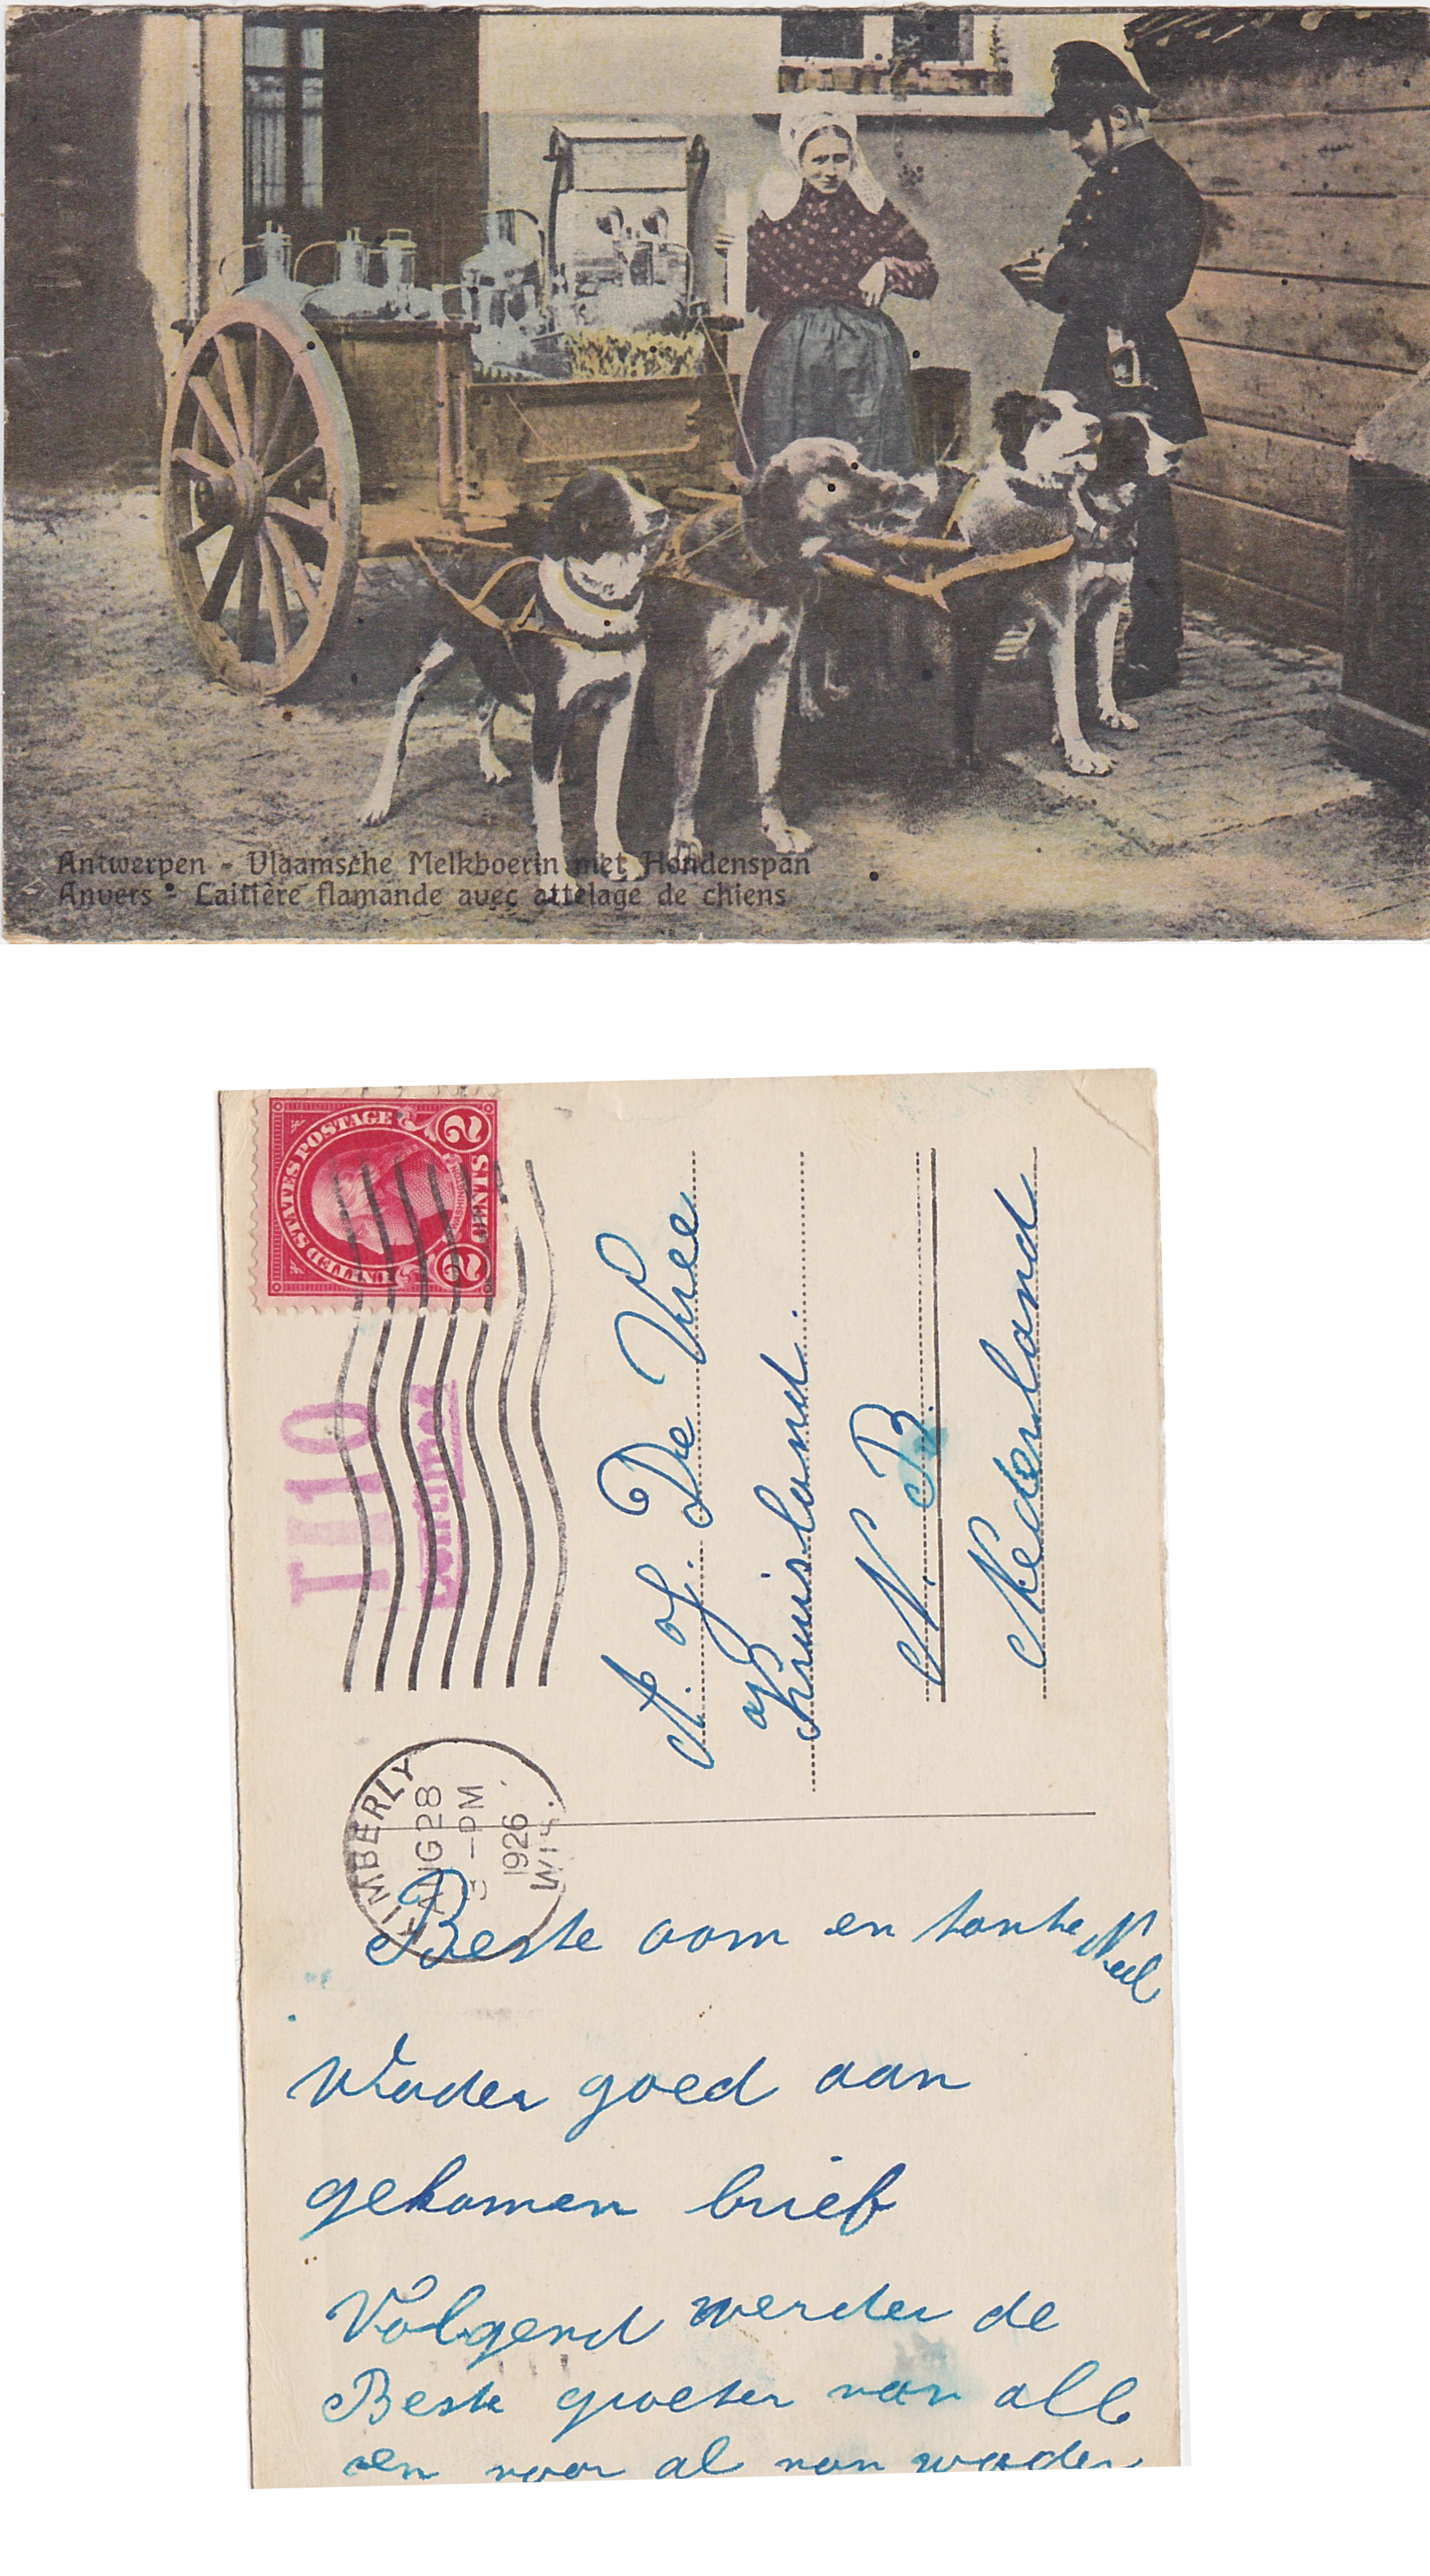 Antwerpen - Vlaamsche Melkboerin met Hondenspan
Anvers - Laitière flamande avec attelage de chiens
UNITED STATES POSTAGE
WASHINGTON
2 CENTS 2
T 10
centimes
KIMBERLY
AUG 28
-PM
1926
WIS.
A. J. De Vree
Kruisland.
N. B.
Nederland
Beste oom en tante Neel
Vader goed aan
gekomen brief
Volgend werder de
Beste groeten van all
en voor al van vader